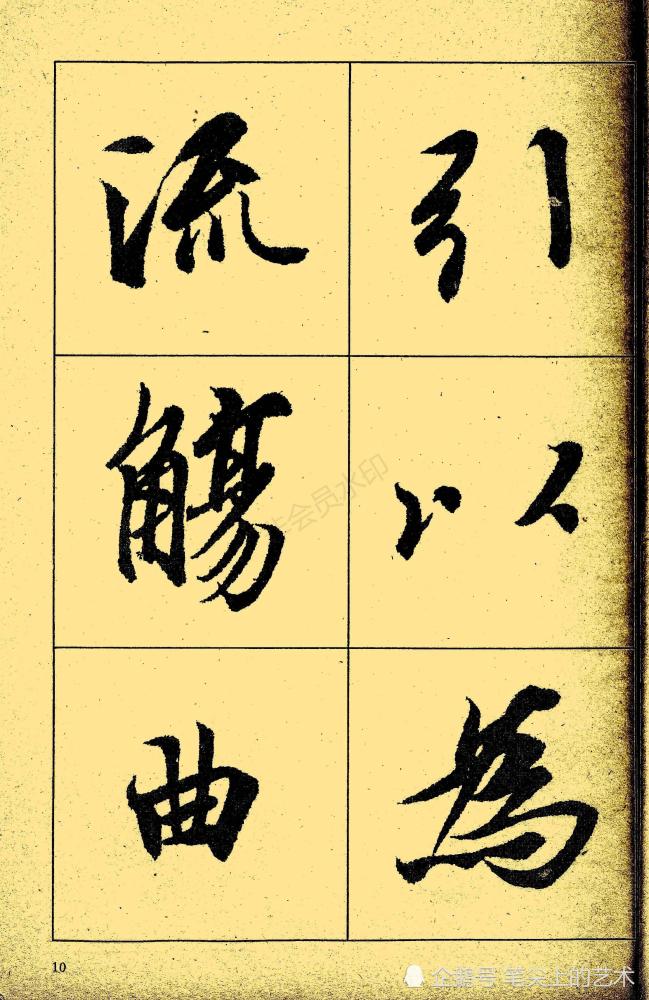 引以為
流觴曲
10
会员水印
企鹅号 笔尖上的艺术